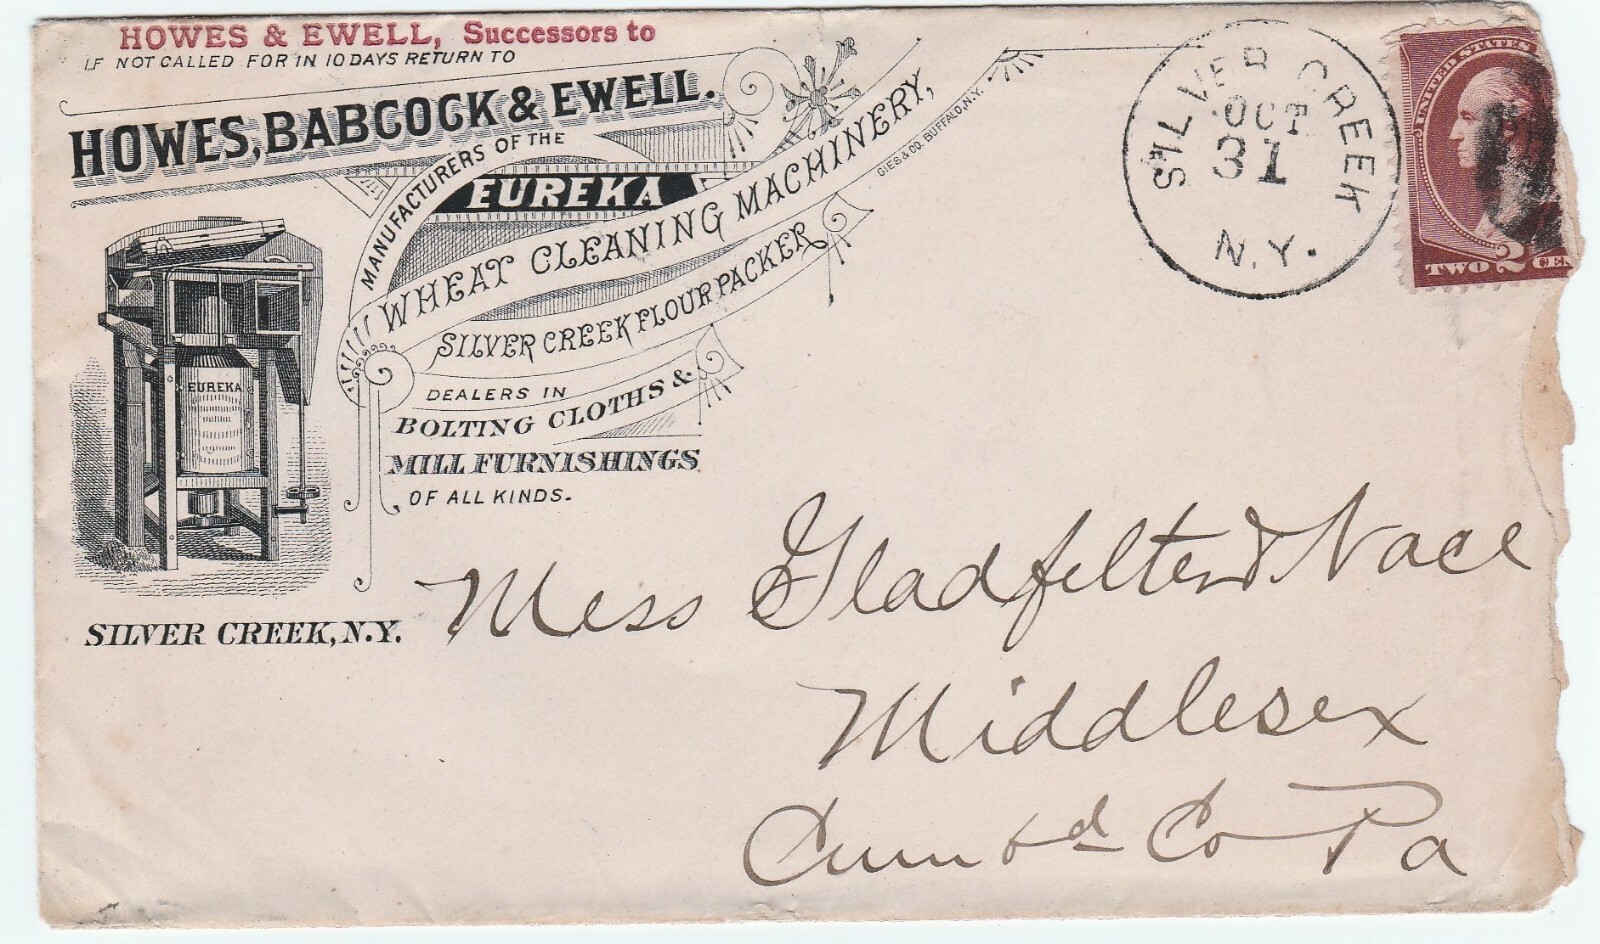 HOWES & EWELL, Successors to
IF NOT CALLED FOR IN 10 DAYS RETURN TO
HOWES, BABCOCK & EWELL.
MANUFACTURERS OF THE
EUREKA
WHEAT CLEANING MACHINERY,
GIES & CO. BUFFALO, N.Y.
SILVER CREEK FLOUR PACKER
DEALERS IN
BOLTING CLOTHS &
MILL FURNISHINGS
OF ALL KINDS.
EUREKA
SILVER CREEK, N.Y.
SILVER CREEK
OCT
31
N.Y.
UNITED STATES
TWO 2 CEN
Mess Gladfelter & Nace
Middlesex
Cumbd Co Pa